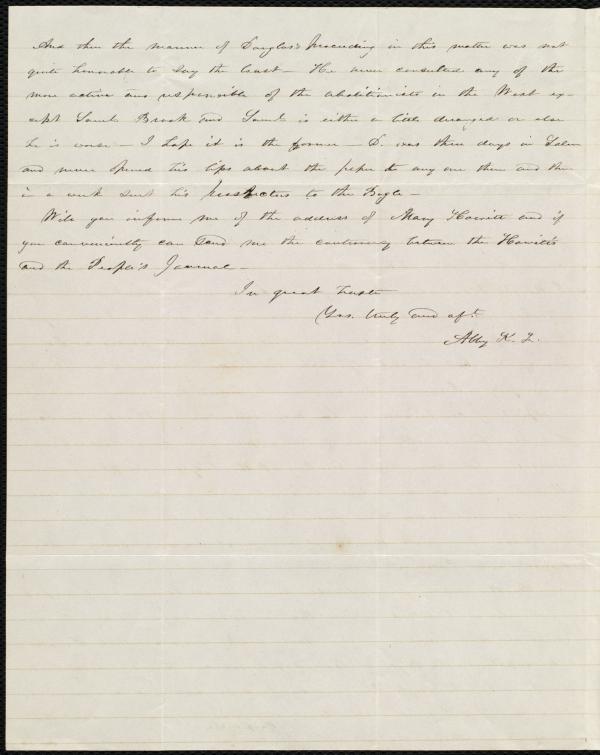 And then the manner of Douglas's proceeding in this matter was not
quite honorable to say the least — He never consulted any of the
more active and responsible of the abolitionists in the West ex-
cept Saml. Brook and Saml. is either a little deranged or else
he is worse — I hope it is the former — D. was three days in Salem
and never opened his lips about the paper to any one there and then
in a week sent his Prospectus to the Bugle —
Will you inform me of the address of Mary Howitt and if
you conveniently can send me the controversy between the Howitts
and the People's Journal —
In great haste
Yrs. truly and aft.
Abby K. F.